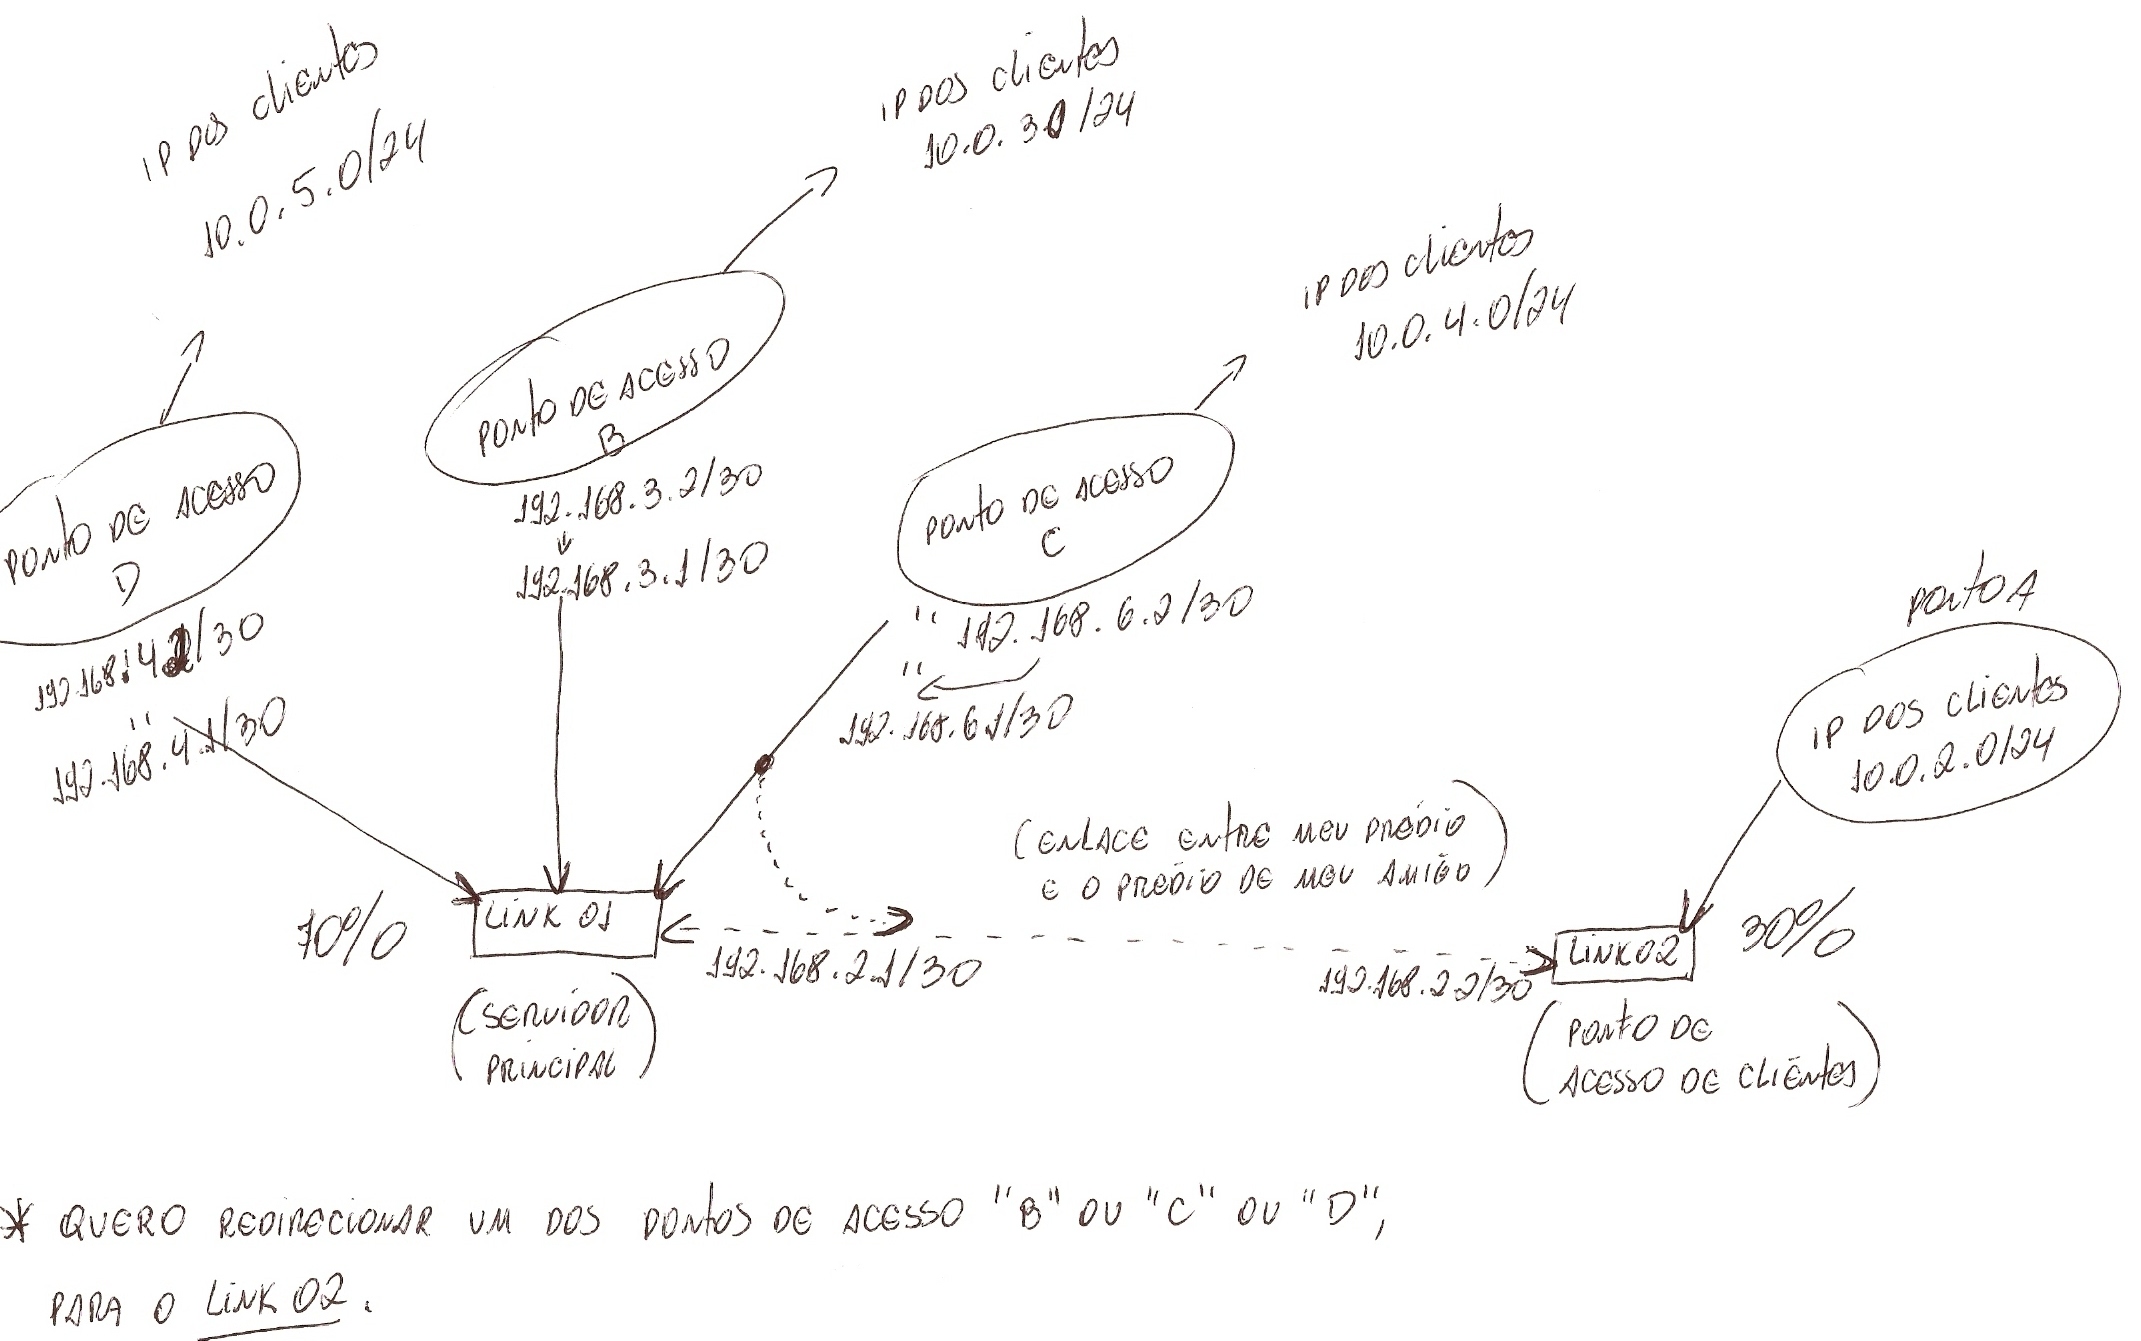 IP DOS clientes
10.0.5.0/24
IP DOS clientes
10.0.30/24
IP DOS clientes
10.0.4.0/24
PONTO DE ACESSO
B
192.168.3.2/30
192.168.3.1/30
PONTO DE ACESSO
C
" 192.168.6.2/30
"
192.168.6.1/30
PONTO DE ACESSO
D
/30
"
192.168.4.1/30
PONTO A
IP DOS CLIENTES
10.0.2.0/24
(ENLACE ENTRE MEU PRÉDIO
E O PRÉDIO DE MEU AMIGO)
70%
LINK 01
192.168.2.1/30
192.168.2.2/30
LINK 02
30%
(SERVIDOR
PRINCIPAL)
(PONTO DE
ACESSO DE CLIENTES)
* QUERO REDIRECIONAR UM DOS PONTOS DE ACESSO "B" OU "C" OU "D",
PARA O LINK 02.